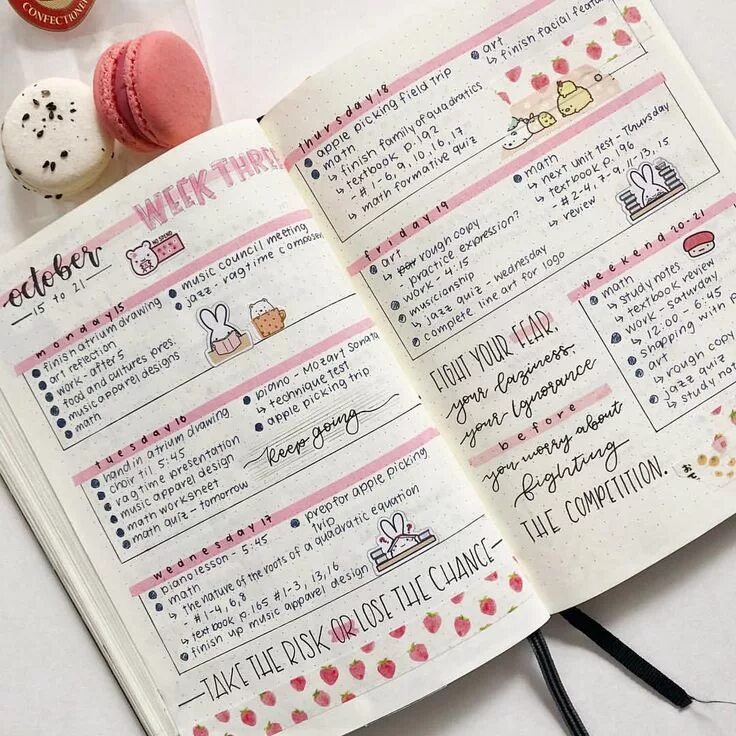 CONFECTIONER
WEEK THREE
october
15 to 21
NO SPEND
monday 15
finish atrium drawing
art reflection
work - after 5
food and cultures pres.
music apparel designs
math
music council meeting
jazz - ragtime composer
tuesday 16
hand in atrium drawing
choir til 5:45
ragtime presentation
music apparel design
math worksheet
math quiz - tomorrow
piano - Mozart sonata
↳ technique test
apple picking trip
keep going
wednesday 17
piano lesson - 5:45
math
↳ the nature of the roots of a quadratic equation
- #1-4, 6, 8
↳ textbook p.165 #1-3, 13, 16
finish up music apparel design
prep for apple picking
trip
—TAKE THE RISK OR LOSE THE CHANCE—
thursday 18
apple picking field trip
math
↳ finish family of quadratics
↳ textbook p.192
- #1-6, 9, 10, 16, 17
↳ math formative quiz
art
↳ finish facial featu
friday 19
art
↳ rough copy
practice expression?
work - 4:15
musicianship
↳ jazz quiz - wednesday
complete line art for logo
math
↳ next unit test - Thursday
↳ textbook p.196
- #2-4, 7-9, 11-13, 15
↳ review
weekend 20-21
math
↳ study notes
↳ textbook review
work - saturday
↳ 12:00 - 6:45
shopping with p
art
↳ rough copy
jazz quiz
↳ study not
FIGHT YOUR FEAR,
your laziness,
your ignorance
before
you worry about
fighting
THE COMPETITION.